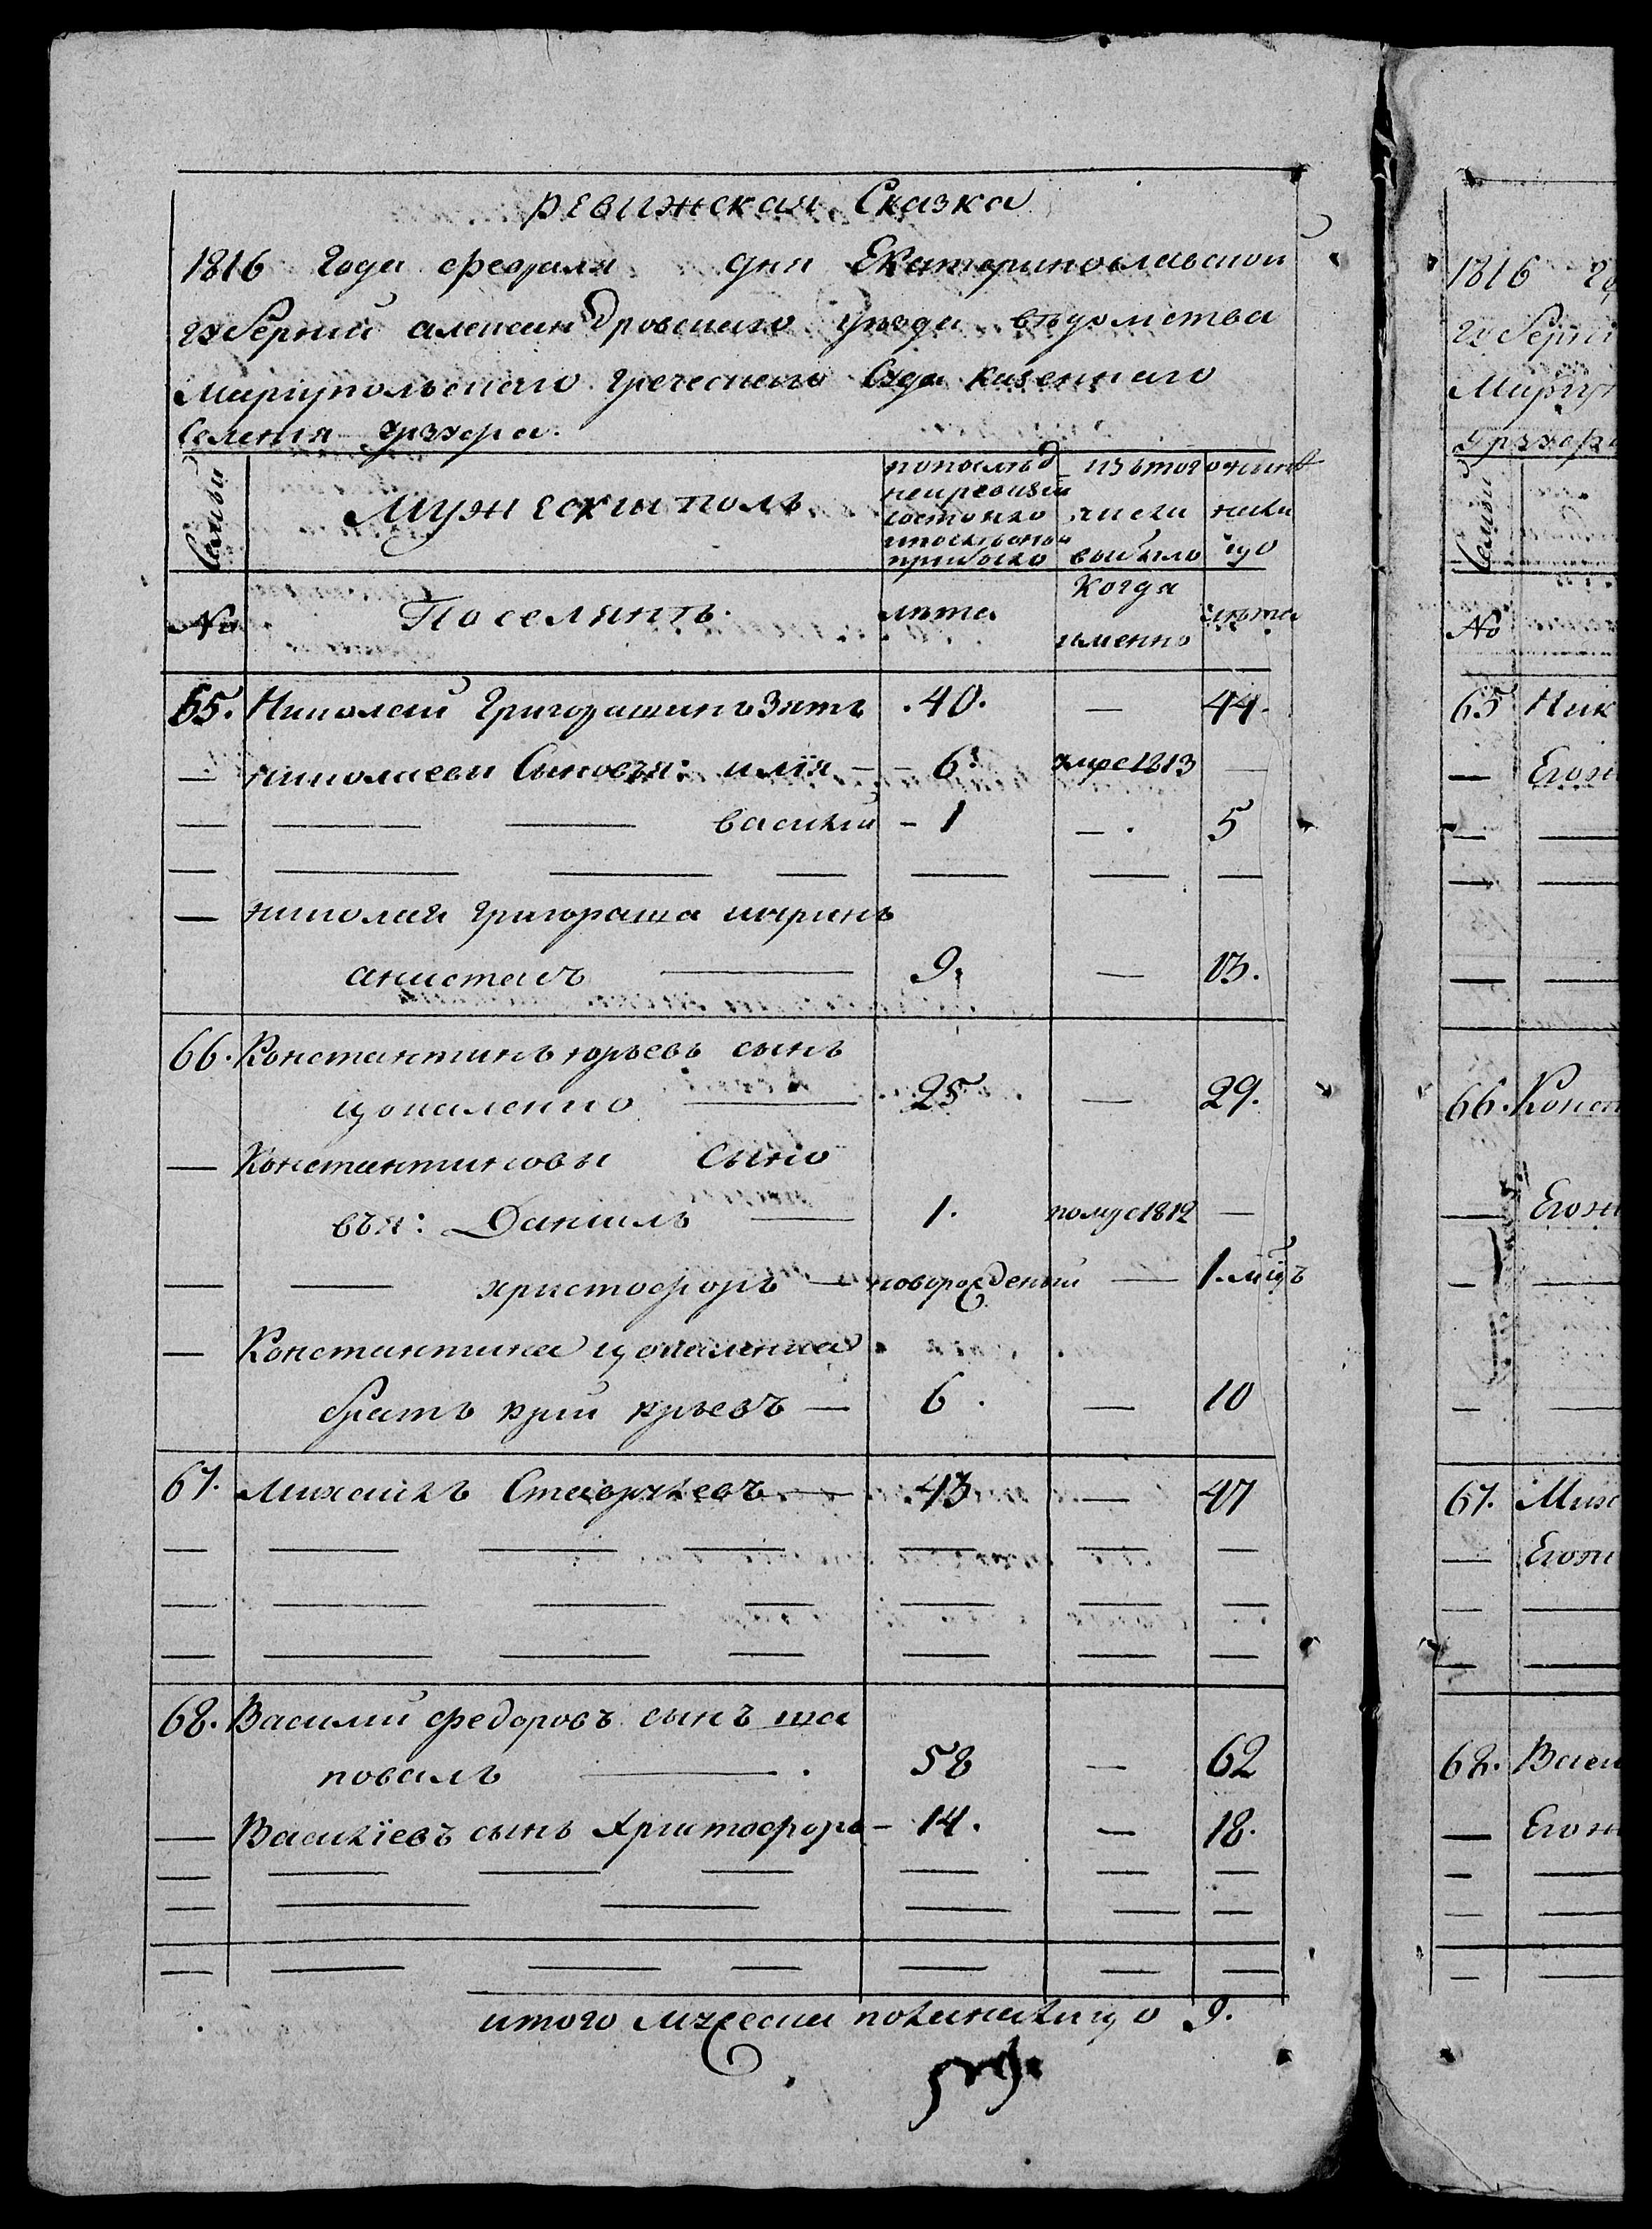 ревижская Сказка
1816 Года февраля дня Екатеринославской
губернии александровскаго уезда ведомства
Мариупольскаго греческаго Суда казеннаго
Селения урзуфа.
Семьи
Мужескии полъ
по послед
ней ревизии
состояло
и после оной
прибыло
изъ того
числа
выбыло
ныне
на ли
цо
№
Поселянъ.
лета
Когда
именно
лета
65. Николай Григорашинъ Зять .40. — 44.
— николаевы Сыновья: илия — 6. умре 1813 —
— василий — 1 — . 5
— николая григораша шуринъ
анистасъ 9. — 13.
66. Константинъ юрьевъ сынъ
цокаленко 25 — 29.
— Константиновы Сыно
вья: Даниилъ 1. помре 1812 —
— христофоръ — новорожденый — 1. мцъ
— Константина цокаленка
братъ юрий юрьевъ — 6. — 10
67. михаилъ Ставриевъ — 43 — 47
68. Василий федоровъ сынъ ша
повалъ . 58 — 62
— Василиевъ сынъ Христофоръ — 14. — 18.
итого мужеска пола на лицо 9.
1816
губерни
Мариуп
урзуфа
Семьи
№
65 Ник
— Его ж
66. Конст
— Его ж
67. Миха
— Его ж
68. Васи
— Его ж